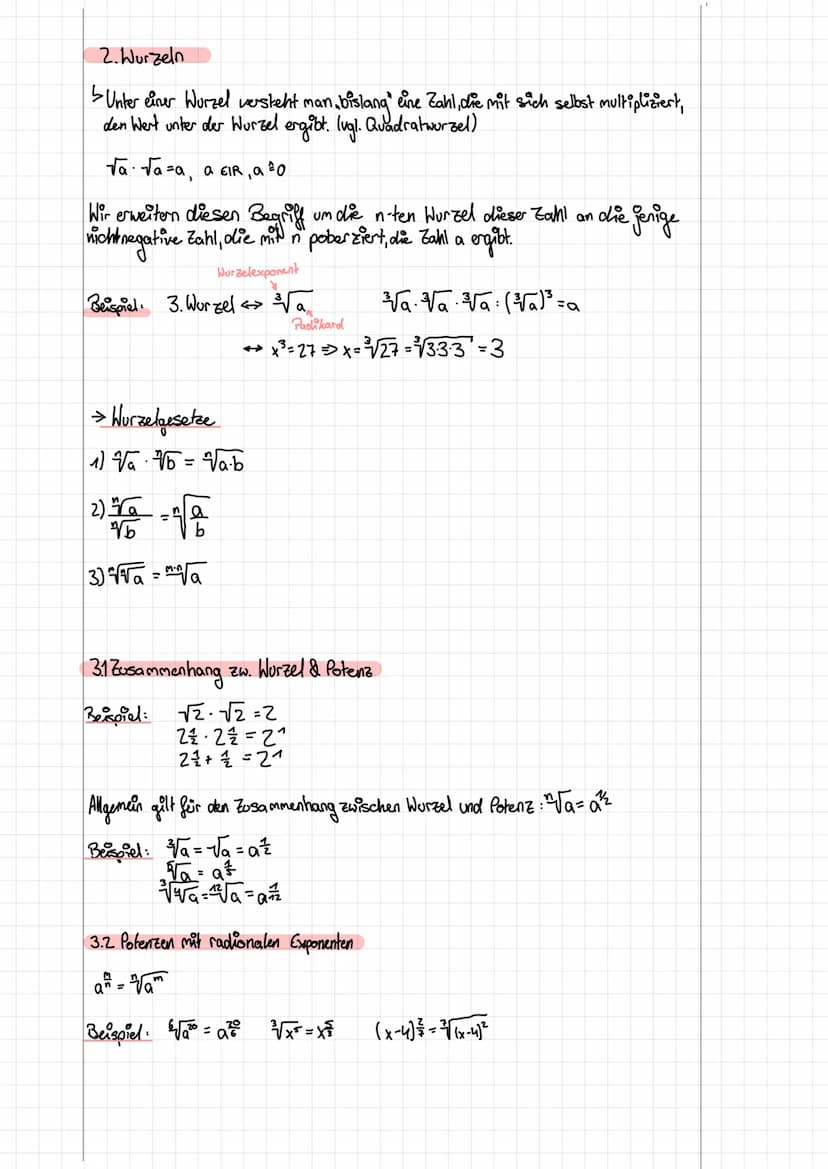 2. Wurzeln
↳ Unter einer Wurzel versteht man „bislang“ eine Zahl, die mit sich selbst multipliziert,
den Wert unter der Wurzel ergibt. (vgl. Quadratwurzel)
√a · √a = a, a ∈ ℝ, a ≥ 0
Wir erweitern diesen Begriff um die n-ten Wurzel dieser Zahl an die jenige
nichtnegative Zahl, die mit n poberziert, die Zahl a ergibt.
Wurzelexponent
Beispiel: 3. Wurzel ↔ ³√a ³√a · ³√a · ³√a : (³√a)³ = a
Padikand
↔ x³ = 27 ⇒ x = ³√27 = ³√3·3·3 = 3
→ Wurzelgesetze
1) ⁿ√a · ⁿ√b = ⁿ√a·b
2) ⁿ√a / ⁿ√b = ⁿ√(a/b)
3) ᵐ√ⁿ√a = ᵐ·ⁿ√a
3.1 Zusammenhang zw. Wurzel & Potenz
Beispiel: √2 · √2 = 2
2^1/2 · 2^1/2 = 2^1
2^1/2 + 1/2 = 2^1
Allgemein gilt für den Zusammenhang zwischen Wurzel und Potenz: ⁿ√a = a^1/2
Beispiel: ²√a = √a = a^1/2
⁵√a = a^1/5
³√⁴√a = ¹²√a = a^1/12
3.2 Potenzen mit radionalen Exponenten
a^m/n = ⁿ√a^m
Beispiel: ⁶√a^20 = a^20/6 ³√x^5 = x^5/3 (x-4)^2/7 = ⁷√(x-4)²